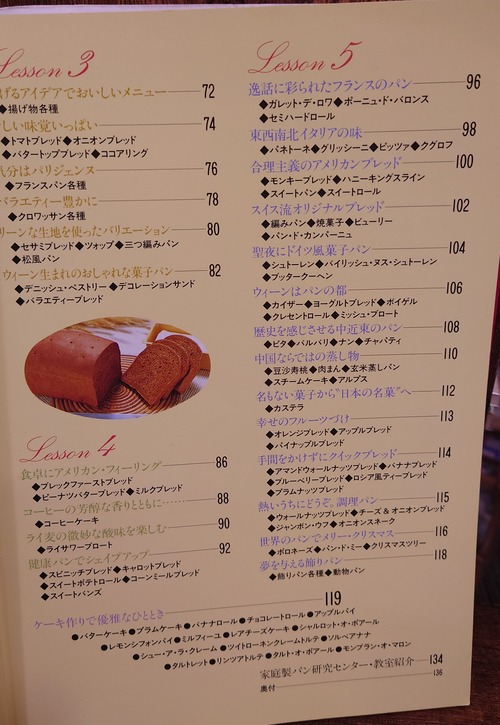 Lesson 3
げるアイデアでおいしいメニュー 72
◆揚げ物各種
しい味覚いっぱい 74
◆トマトブレッド◆オニオンブレッド
◆バタートップブレッド◆ココアリング
気分はパリジェンヌ 76
◆フランスパン各種
バラエティー豊かに 78
◆クロワッサン各種
リーンな生地を使ったバリエーション 80
◆セサミブレッド◆ツォップ◆三つ編みパン
◆松風パン
ウィーン生まれのおしゃれな菓子パン 82
◆デニッシュ・ペストリー◆デコレーションサンド
◆バラエティーブレッド
Lesson 4
食卓にアメリカン・フィーリング 86
◆ブレックファーストブレッド
◆ピーナツバターブレッド◆ミルクブレッド
コーヒーの芳醇な香りとともに…… 88
◆コーヒーケーキ
ライ麦の微妙な酸味を楽しむ 90
◆ライサワーブロート
健康パンでシェイプアップ 92
◆スピニッチブレッド◆キャロットブレッド
◆スイートポテトロール◆コーンミールブレッド
◆スイートバンズ
Lesson 5
逸話に彩られたフランスのパン 96
◆ガレット・デ・ロワ◆ポーニュ・ド・バロンス
◆セミハードロール
東西南北イタリアの味 98
◆パネトーネ◆グリッシーニ◆ピッツァ◆クグロフ
合理主義のアメリカンブレッド 100
◆モンキーブレッド◆ハニーキングスライン
◆スイートパン◆スイートロール
スイス流オリジナルブレッド 102
◆編みパン◆焼菓子◆ビューリー
◆パン・ド・カンパーニュ
聖夜にドイツ風菓子パン 104
◆シュトーレン◆バイリッシュ・ヌス・シュトーレン
◆ブッタークーヘン
ウィーンはパンの都 106
◆カイザー◆ヨーグルトブレッド◆ボイゲル
◆クレセントロール◆ミッシュ・ブロート
歴史を感じさせる中近東のパン 108
◆ピタ◆バルバリ◆ナン◆チャパティ
中国ならではの蒸し物 110
◆豆沙寿桃◆肉まん◆玄米蒸しパン
◆スチームケーキ◆アルプス
名もない菓子から"日本の名菓"へ 112
◆カステラ
幸せのフルーツづけ 113
◆オレンジブレッド◆アップルブレッド
◆パイナップルブレッド
手間をかけずにクイックブレッド 114
◆アマンドウォールナッツブレッド◆バナナブレッド
◆ブルーベリーブレッド◆ロシア風ティーブレッド
◆プラムナッツブレッド
熱いうちにどうぞ。調理パン 115
◆ウォールナッツブレッド◆チーズ&オニオンブレッド
◆ジャンボン・ウフ◆オニオンスネーク
世界のパンでメリー・クリスマス 116
◆ポロネーズ◆パン・ド・ミー◆クリスマスツリー
夢を与える飾りパン 118
◆飾りパン各種◆動物パン
ケーキ作りで優雅なひととき 119
●バターケーキ●プラムケーキ●バナナロール●チョコレートロール●アップルパイ
●レモンシフォンパイ●ミルフィーユ●レアチーズケーキ●シャルロット・オ・ポアール
●シュー・ア・ラ・クレーム●ツイトローネンクレームトルテ●ソルベアナナ
●タルトレット●リンツアトルテ●タルト・オ・ポアール●モンブラン・オ・マロン
家庭製パン研究センター・教室紹介 134
奥付 136